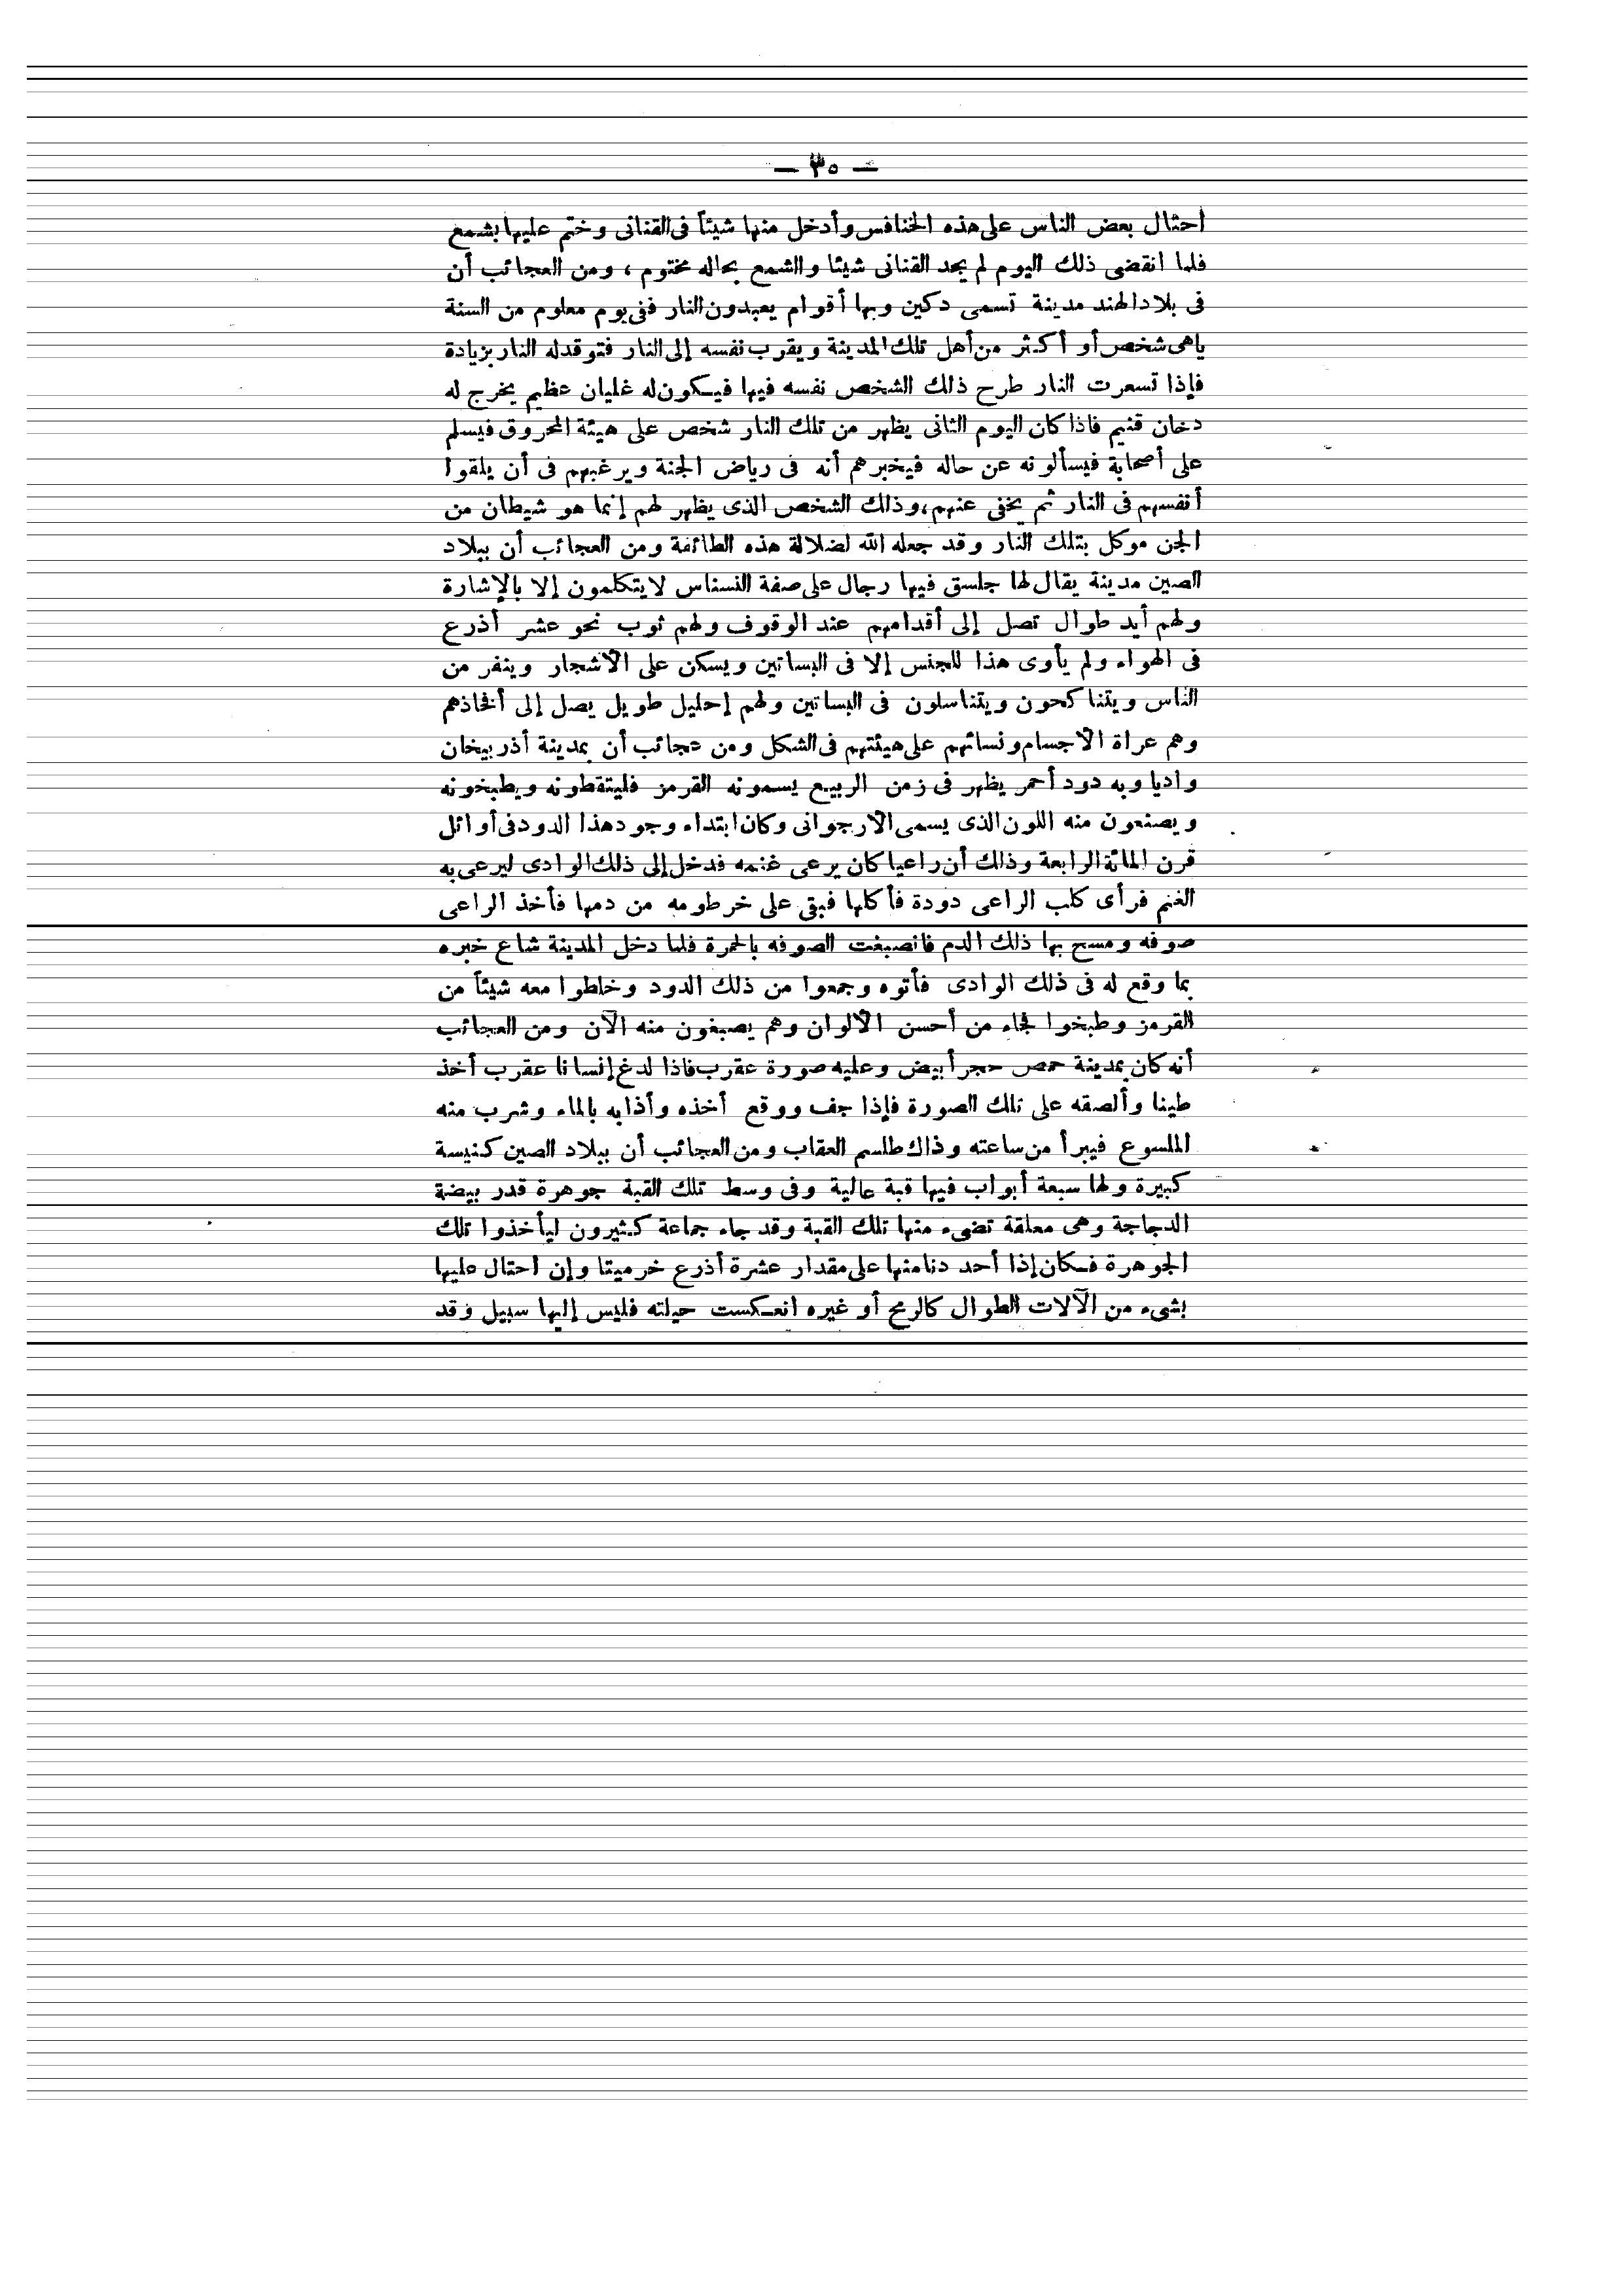 — ٣٥ —
احتال بعض الناس على هذه الخنافس وأدخل منها شيئاً فى القنانى وختم عليها بشمع
فلما انقضى ذلك اليوم لم يجد القنانى شيئا والشمع بحاله مختوم ، ومن العجائب أن
فى بلاد الهند مدينة تسمى دكين وبها أقوام يعبدون النار ففى يوم معلوم من السنة
ياهى شخص أو أكثر من أهل تلك المدينة ويقرب نفسه إلى النار فتوقد له النار بزيادة
فإذا تسعرت النار طرح ذلك الشخص نفسه فيها فيكون له غليان عظيم يخرج له
دخان قتيم فاذا كان اليوم الثانى يظهر من تلك النار شخص على هيئة المحروق فيسلم
على أصحابة فيسألونه عن حاله فيخبرهم أنه فى رياض الجنة ويرغبهم فى أن يلقوا
أنفسهم فى النار ثم يخفى عنهم، وذلك الشخص الذى يظهر لهم إنما هو شيطان من
الجن موكل بتلك النار وقد جعله الله لضلالة هذه الطائفة ومن العجائب أن ببلاد
الصين مدينة يقال لها جلسق فيها رجال على صفة النسناس لا يتكلمون إلا بالإشارة
ولهم أيد طوال تصل إلى أقدامهم عند الوقوف ولهم ثوب نحو عشر أذرع
فى الهواء ولم يأوى هذا للجنس إلا فى البساتين ويسكن على الاشجار وينفر من
الناس ويتناكحون ويتناسلون فى البساتين ولهم إحليل طويل يصل إلى أفخاذهم
وهم عراة الاجسام ونسائهم على هيئتهم فى الشكل ومن عجائب أن بمدينة أذربيخان
واديا وبه دود أحمر يظهر فى زمن الربيع يسمونه القرمز فليتقطونه ويطبخونه
ويصنعون منه اللون الذى يسمى الارجوانى وكان ابتداء وجود هذا الدود فى أوائل
قرن المائة الرابعة وذلك أن راعيا كان يرعى غنمه فدخل إلى ذلك الوادى ليرعى به
الغنم فرأى كلب الراعى دودة فأكلها فبقى على خرطومه من دمها فأخذ الراعى
صوفه ومسح بها ذلك الدم فانصبغت الصوفه بالحمرة فلما دخل المدينة شاع خبره
بما وقع له فى ذلك الوادى فأتوه وجمعوا من ذلك الدود وخلطوا معه شيئاً من
القرمز وطبخوا فجاء من أحسن الالوان وهم يصبغون منه الآن ومن العجائب
أنه كان بمدينة حمص حجر أبيض وعليه صورة عقرب فاذا لدغ إنسانا عقرب أخذ
طينا وألصقه على تلك الصورة فإذا جف ووقع أخذه وأذابه بالماء وشرب منه
الملسوع فيبرأ من ساعته وذاك طلسم العقاب ومن العجائب أن ببلاد الصين كنيسة
كبيرة ولها سبعة أبواب فيها قبة عالية وفى وسط تلك القبة جوهرة قدر بيضة
الدجاجة وهى معلقة تضىء منها تلك القبة وقد جاء جماعة كثيرون ليأخذوا تلك
الجوهرة فكان إذا أحد دنا منها على مقدار عشرة أذرع خر ميتا وإن احتال عليها
بشىء من الآلات الطوال كالرمح أو غيره انعكست حيلته فليس إليها سبيل وقد